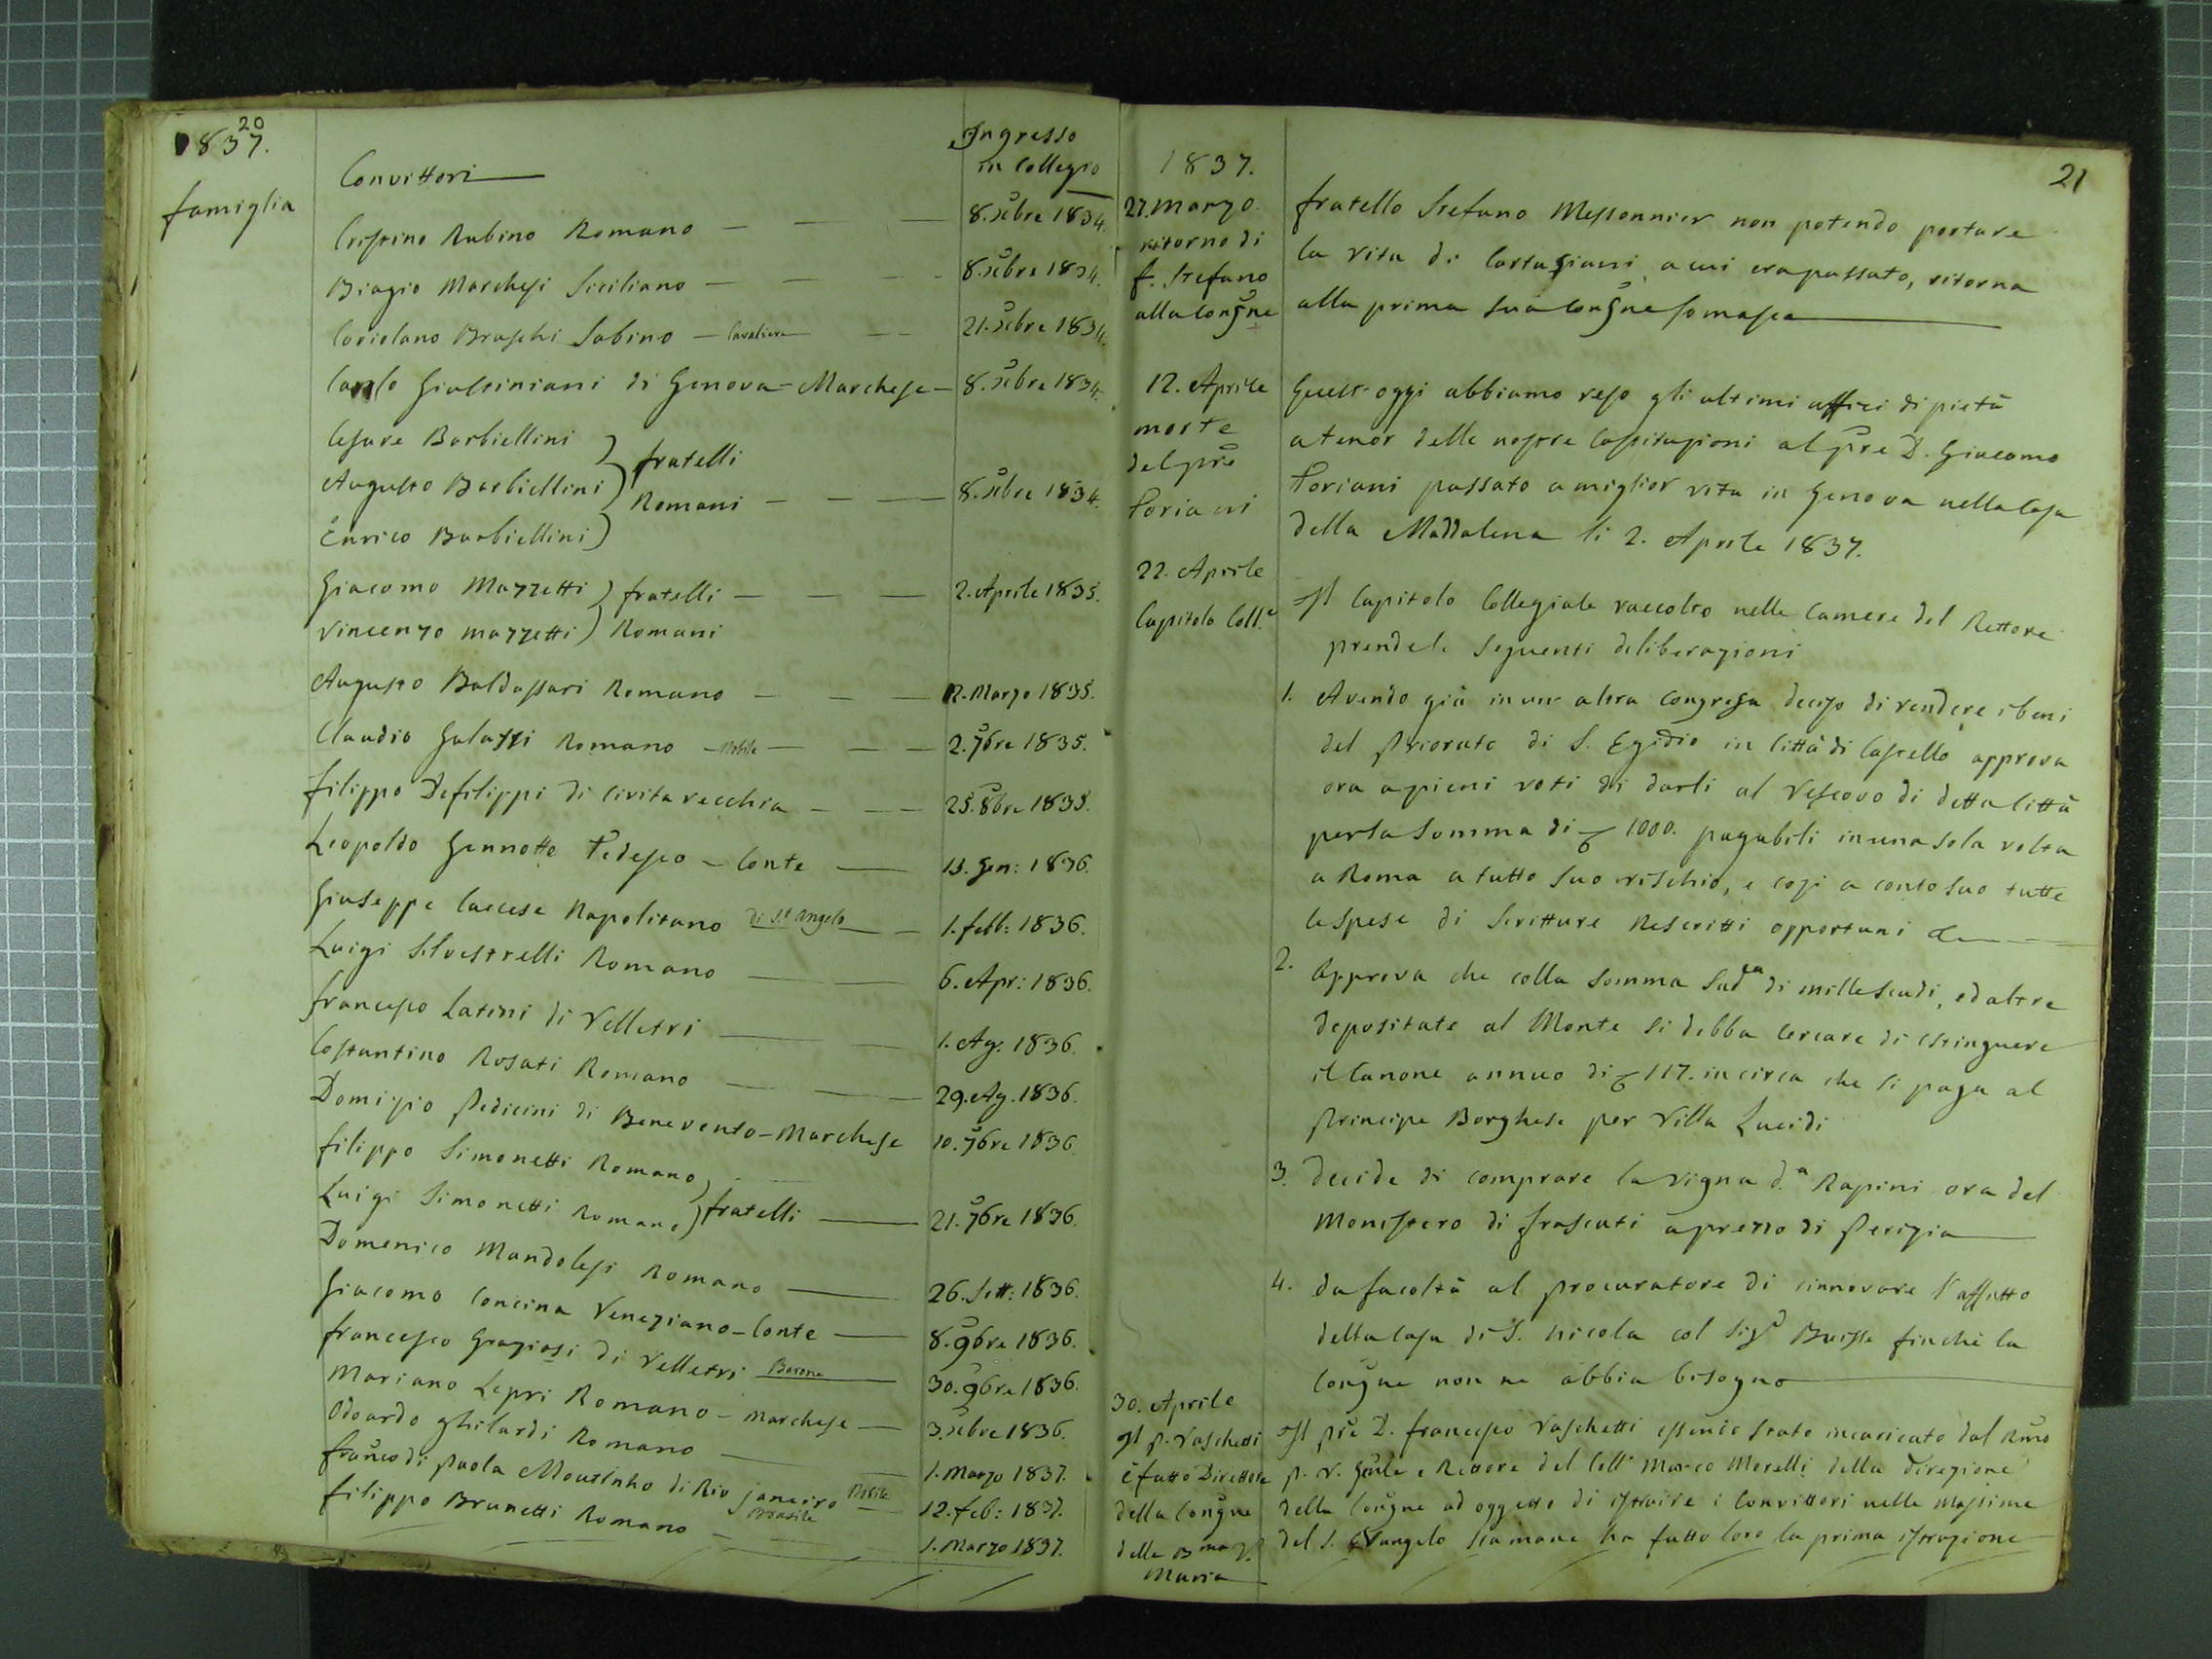 20
1837.
famiglia
Convittori
Ingresso
in Collegio
Crispino Rubino Romano — — — 8. xbre 1834.
Biagio Marchesi Siciliano — — — 8. xbre 1834.
Coriolano Braschi Sabino — Cavaliere — — 21. xbre 1834.
Carlo Giustiniani di Genova — Marchese — 8. xbre 1834.
Cesare Barbiellini
Augusto Barbiellini ) fratelli
Enrico Barbiellini ) Romani — — — 8. xbre 1834.
Giacomo Mazzetti ) fratelli — — — 2. Aprile 1835.
Vincenzo Mazzetti ) Romani
Augusto Baldassari Romano — — — 12. Marzo 1835.
Claudio Galassi Romano — Nobile — — — 2. 7bre 1835.
Filippo Defilippi di Civitavecchia — — — 25. 8bre 1835.
Leopoldo Gennotte Tedesco — Conte — 13. Gen: 1836.
Giuseppe Caccese Napolitano di S. Angelo — 1. febb: 1836.
Luigi Silvestrelli Romano — — 6. Apr: 1836.
Francesco Latini di Velletri — — 1. Ag: 1836.
Costantino Rosati Romano — — 29. Ag. 1836.
Domizio Pedicini di Benevento — Marchese 10. 7bre 1836
Filippo Simonetti Romano
Luigi Simonetti Romano ) fratelli — 21. 7bre 1836.
Domenico Mandolesi Romano — 26. Sett: 1836.
Giacomo Concina Veneziano — Conte — 8. 9bre 1836.
Francesco Graziosi di Velletri Barone — 30. 9bre 1836.
Mariano Lepri Romano — Marchese — 3. xbre 1836.
Odoardo Ghilardi Romano — — 1. Marzo 1837.
Franco di Paola Moutinho di Rio Janeiro Nobile — 12. feb: 1837.
Brasile
Filippo Brunetti Romano — — 1. Marzo 1837.
21
1837.
27. Marzo.
ritorno di
f. Stefano
alla Congne
fratello Stefano Messonnier non potendo portare
la vita di Cartusiani a cui era passato, ritorna
alla prima sua Congne Somasca
12. Aprile
morte
del pre
Toriani
Quest' oggi abbiamo reso gli ultimi uffici di pietà
a tenor delle nostre Costituzioni al pre D. Giacomo
Toriani passato a miglior vita in Genova nella Casa
della Maddalena li 2. Aprile 1837.
22. Aprile
Capitolo Coll.e
Il Capitolo Collegiale raccolto nelle Camere del Rettore
prende le seguenti deliberazioni
1. Avendo già in un' altra Congrega deciso di vendere i beni
del Priorato di S. Egidio in Città di Castello approva
ora a pieni voti di darli al Vescovo di detta Città
per la somma di 1000. pagabili in una sola volta
a Roma a tutto suo rischio, e così a conto suo tutte
le spese di Scritture Rescritti opportuni &
2. Approva che colla somma sudta di mille scudi, ed altre
depositate al Monte si debba cercare di estinguere
il Canone annuo di 117. in circa che si paga al
Principe Borghese per Villa Lucidi
3. decide di comprare la Vigna d.a Rapini ora del
Monistero di Frascati a prezzo di Perizia
4. da facoltà al procuratore di rinnovare l' affitto
della Casa di S. Nicola col Sigr finchè la
Congne non ne abbia bisogno
30. Aprile
Il p. Vaschetti
è fatto Direttore
della Congne
della Bma V.
Maria
Il pre D. Francesco Vaschetti essendo stato incaricato dal Rmo
p. V. Gnle e Rettore del Coll Marco Morelli della direzione
della Congne ad oggetto di istruire i Convittori nelle Massime
del S. Evangelo stamane ha fatto loro la prima istruzione